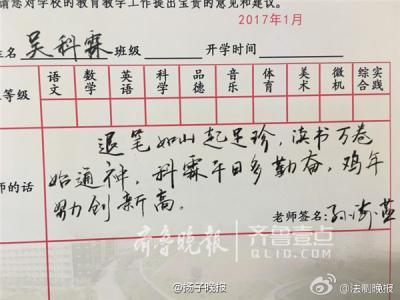 请您对学校的教育教学工作提出宝贵的意见和建议。
2017年1月
姓名 吴科霖 班级 开学时间
语文 数学 英语 科学 品德 音乐 体育 美术 微机 综合 实践
等级
退笔如山起足珍，读书万卷
始通神，科霖平日多勤奋，鸡年
努力创新高。
师的话
老师签名：
齐鲁晚报 齐鲁壹点
QLID.COM
@扬子晚报
@法制晚报